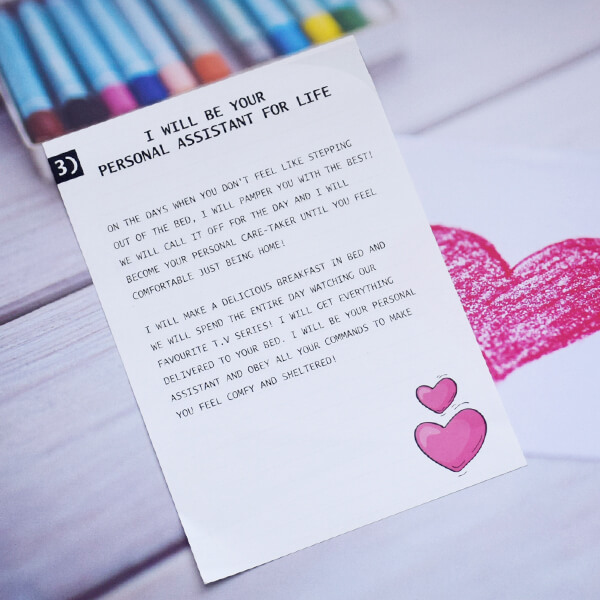 3)
I WILL BE YOUR
PERSONAL ASSISTANT FOR LIFE
ON THE DAYS WHEN YOU DON'T FEEL LIKE STEPPING
OUT OF THE BED, I WILL PAMPER YOU WITH THE BEST!
WE WILL CALL IT OFF FOR THE DAY AND I WILL
BECOME YOUR PERSONAL CARE-TAKER UNTIL YOU FEEL
COMFORTABLE JUST BEING HOME!
I WILL MAKE A DELICIOUS BREAKFAST IN BED AND
WE WILL SPEND THE ENTIRE DAY WATCHING OUR
FAVOURITE T.V SERIES! I WILL GET EVERYTHING
DELIVERED TO YOUR BED. I WILL BE YOUR PERSONAL
ASSISTANT AND OBEY ALL YOUR COMMANDS TO MAKE
YOU FEEL COMFY AND SHELTERED!